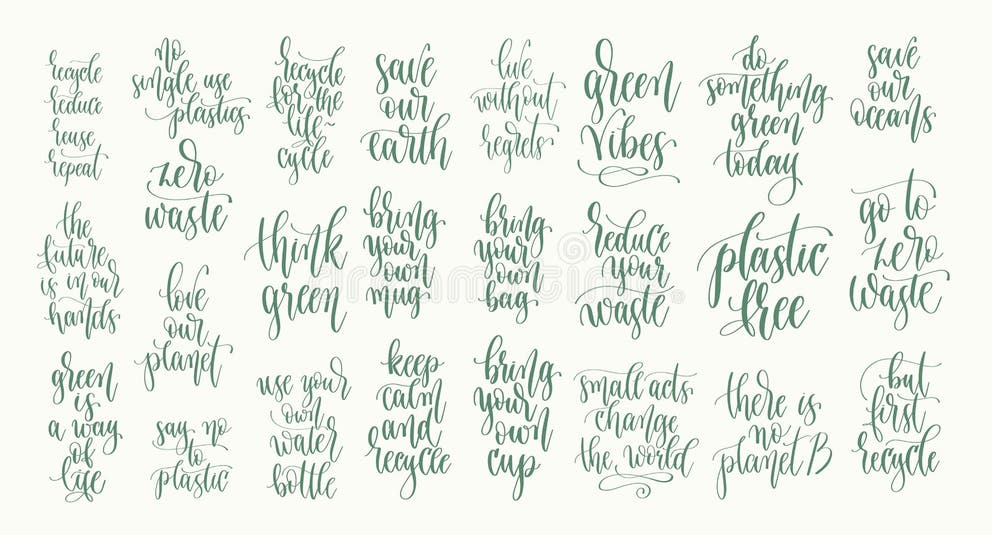 recycle
reduce
reuse
repeat
no
single use
plastics
recycle
for the
life
cycle
save
our
earth
live
without
regrets
green
vibes
do
something
green
today
save
our
oceans
zero
waste
the
future
is in our
hands
think
green
bring
your
own
mug
bring
your
own
bag
reduce
your
waste
plastic
free
go to
zero
waste
love
our
planet
green
is
a way
of
life
say no
to
plastic
use your
own
water
bottle
keep
calm
and
recycle
bring
your
own
cup
small acts
change
the world
there is
no
planet B
but
first
recycle
dreamstime